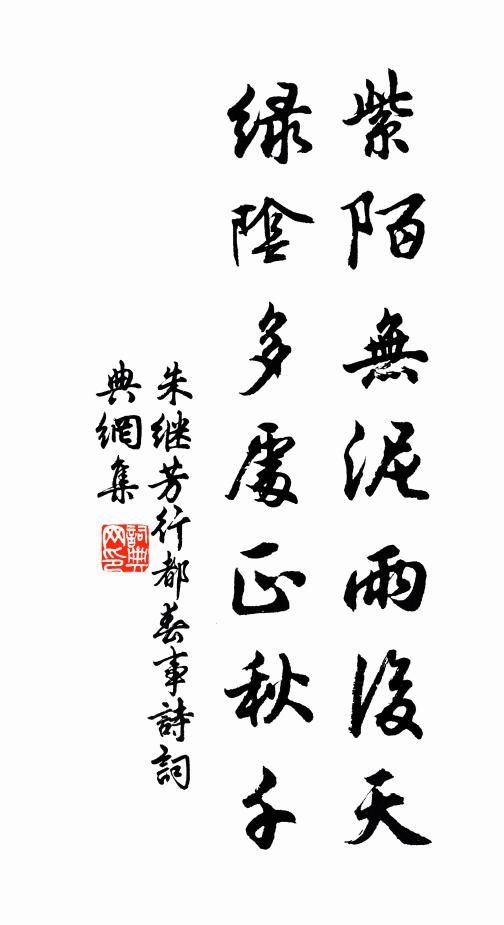 紫陌無泥雨後天
绿陰多處正秋千
朱继芳行都春事詩詞
典網集
詞典
网印